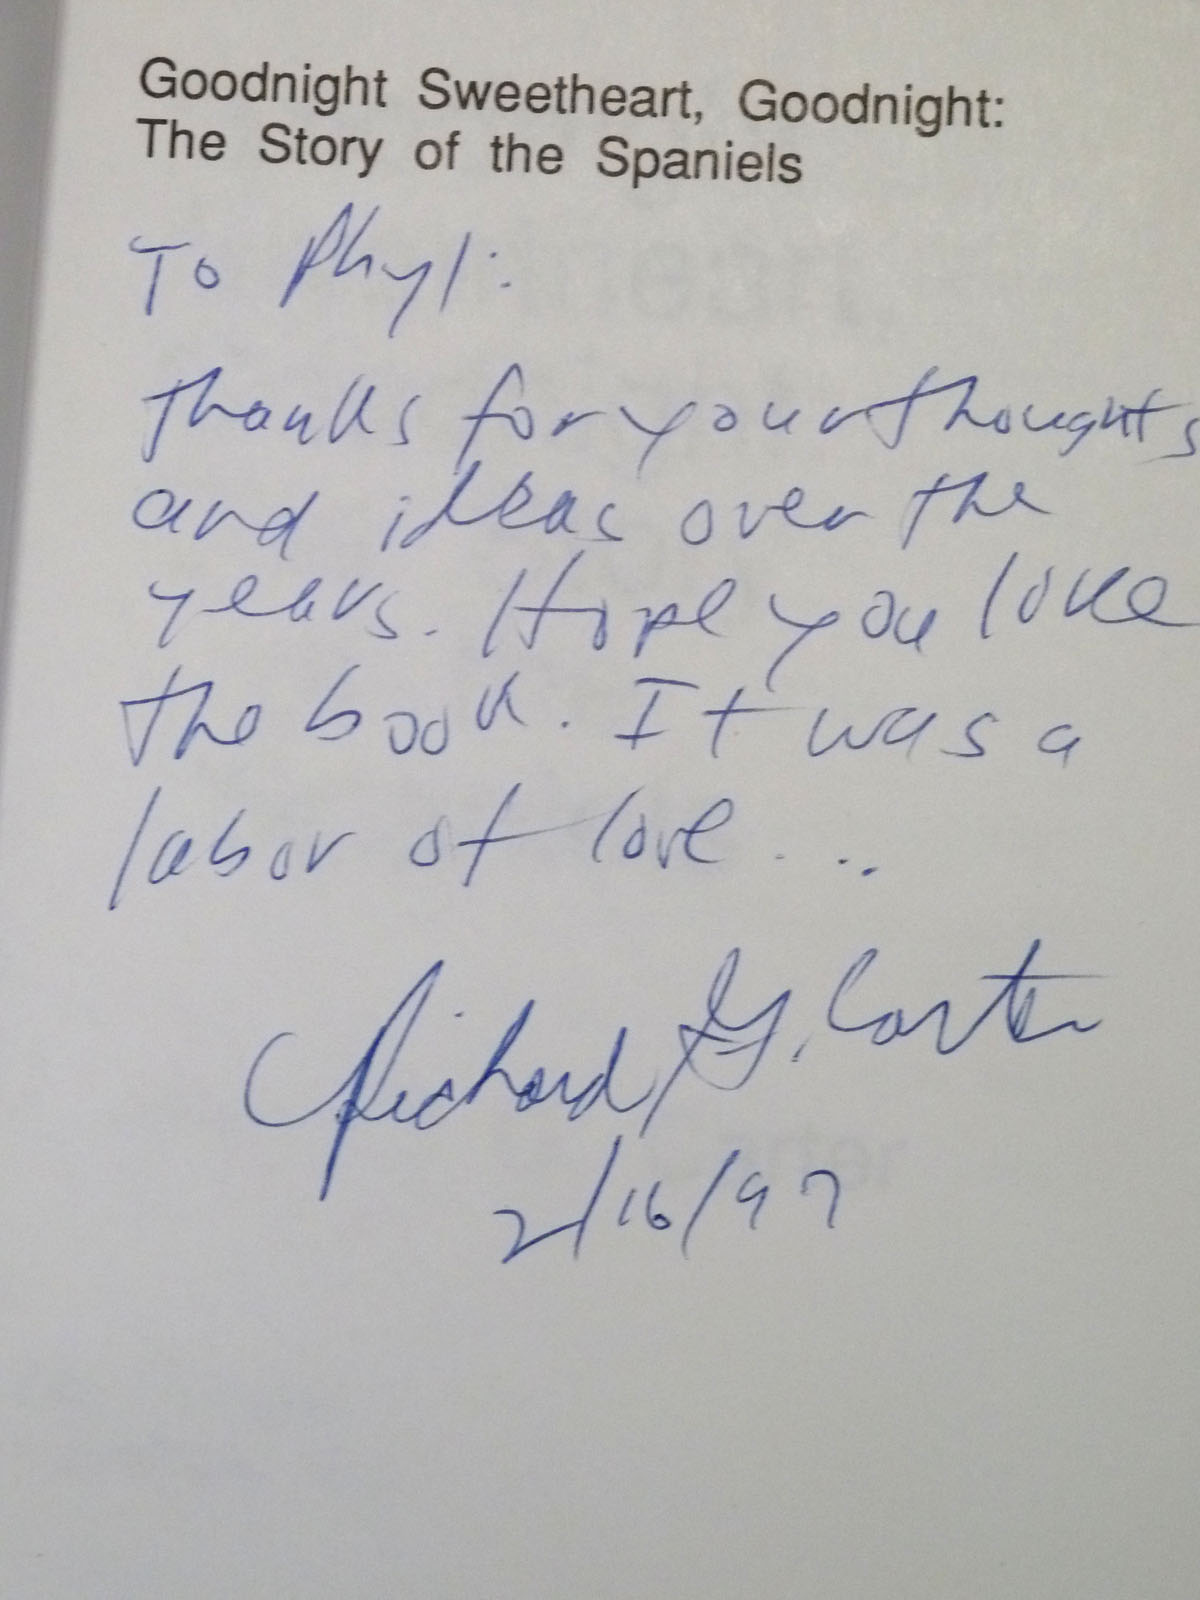 Goodnight Sweetheart, Goodnight:
The Story of the Spaniels
To Phyl:
Thanks for your thoughts
and ideas over the
years. Hope you love
the book. It was a
labor of love...
Richard G. Carter
2/16/97